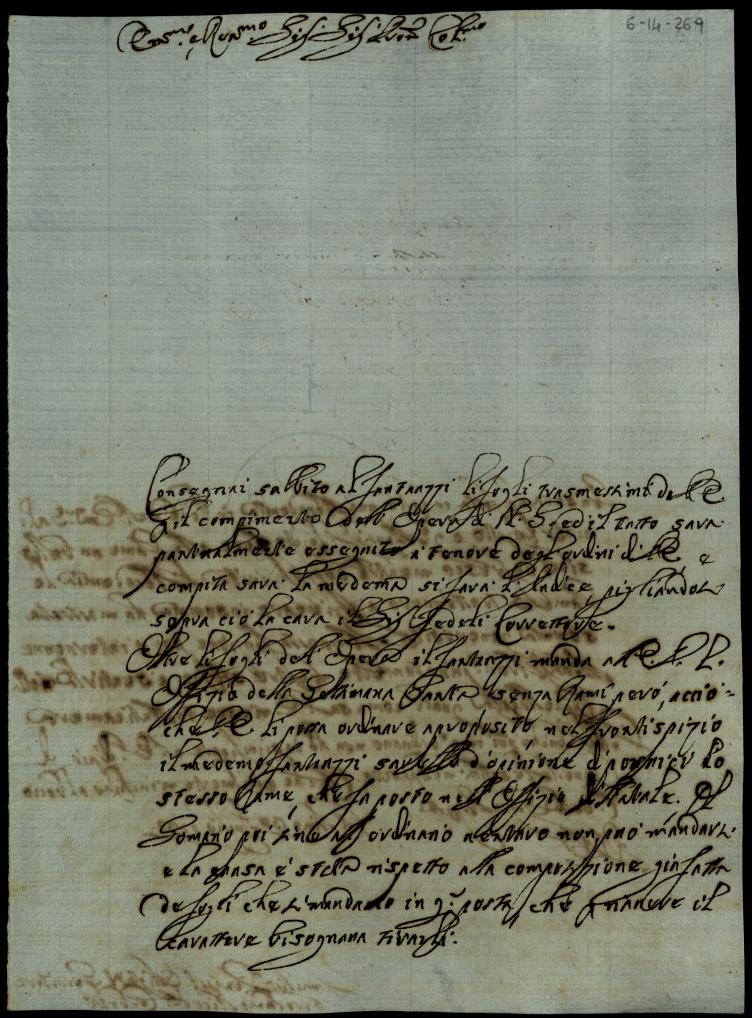 6-14-269
Em.mo e Rev.mo Sig.r Sig.r Pron Col.mo
Consegnai subbito al Fantauzzi li fogli trasmessimi da V.E.
il compimento dell Opera di
pontualmente esseguito a tenore degl'ordini di V.E. e
compita sarà la medema si farà l'Indice, pigliandosi
sopra ciò la cura il Sig.r Fedeli Correttore.
Oltre li fogli dell Opera il Fantauzzi manda all
Offizio della Settimana Santa senza Rami però, accio=
che V.E. li possa ordinare a proposito nel frontispizio
il medemo Fantauzzi sarebbe d'opinione di porvici lo
stesso Rame, che ha posto nell Offizio di Natale. Il
Somario poi ordinario non può mandarsi
e la causa è stata rispetto alla compositione già fatta
de fogli che si mandano in q.a posta, che p manere il
carattere bisognava tirarli.